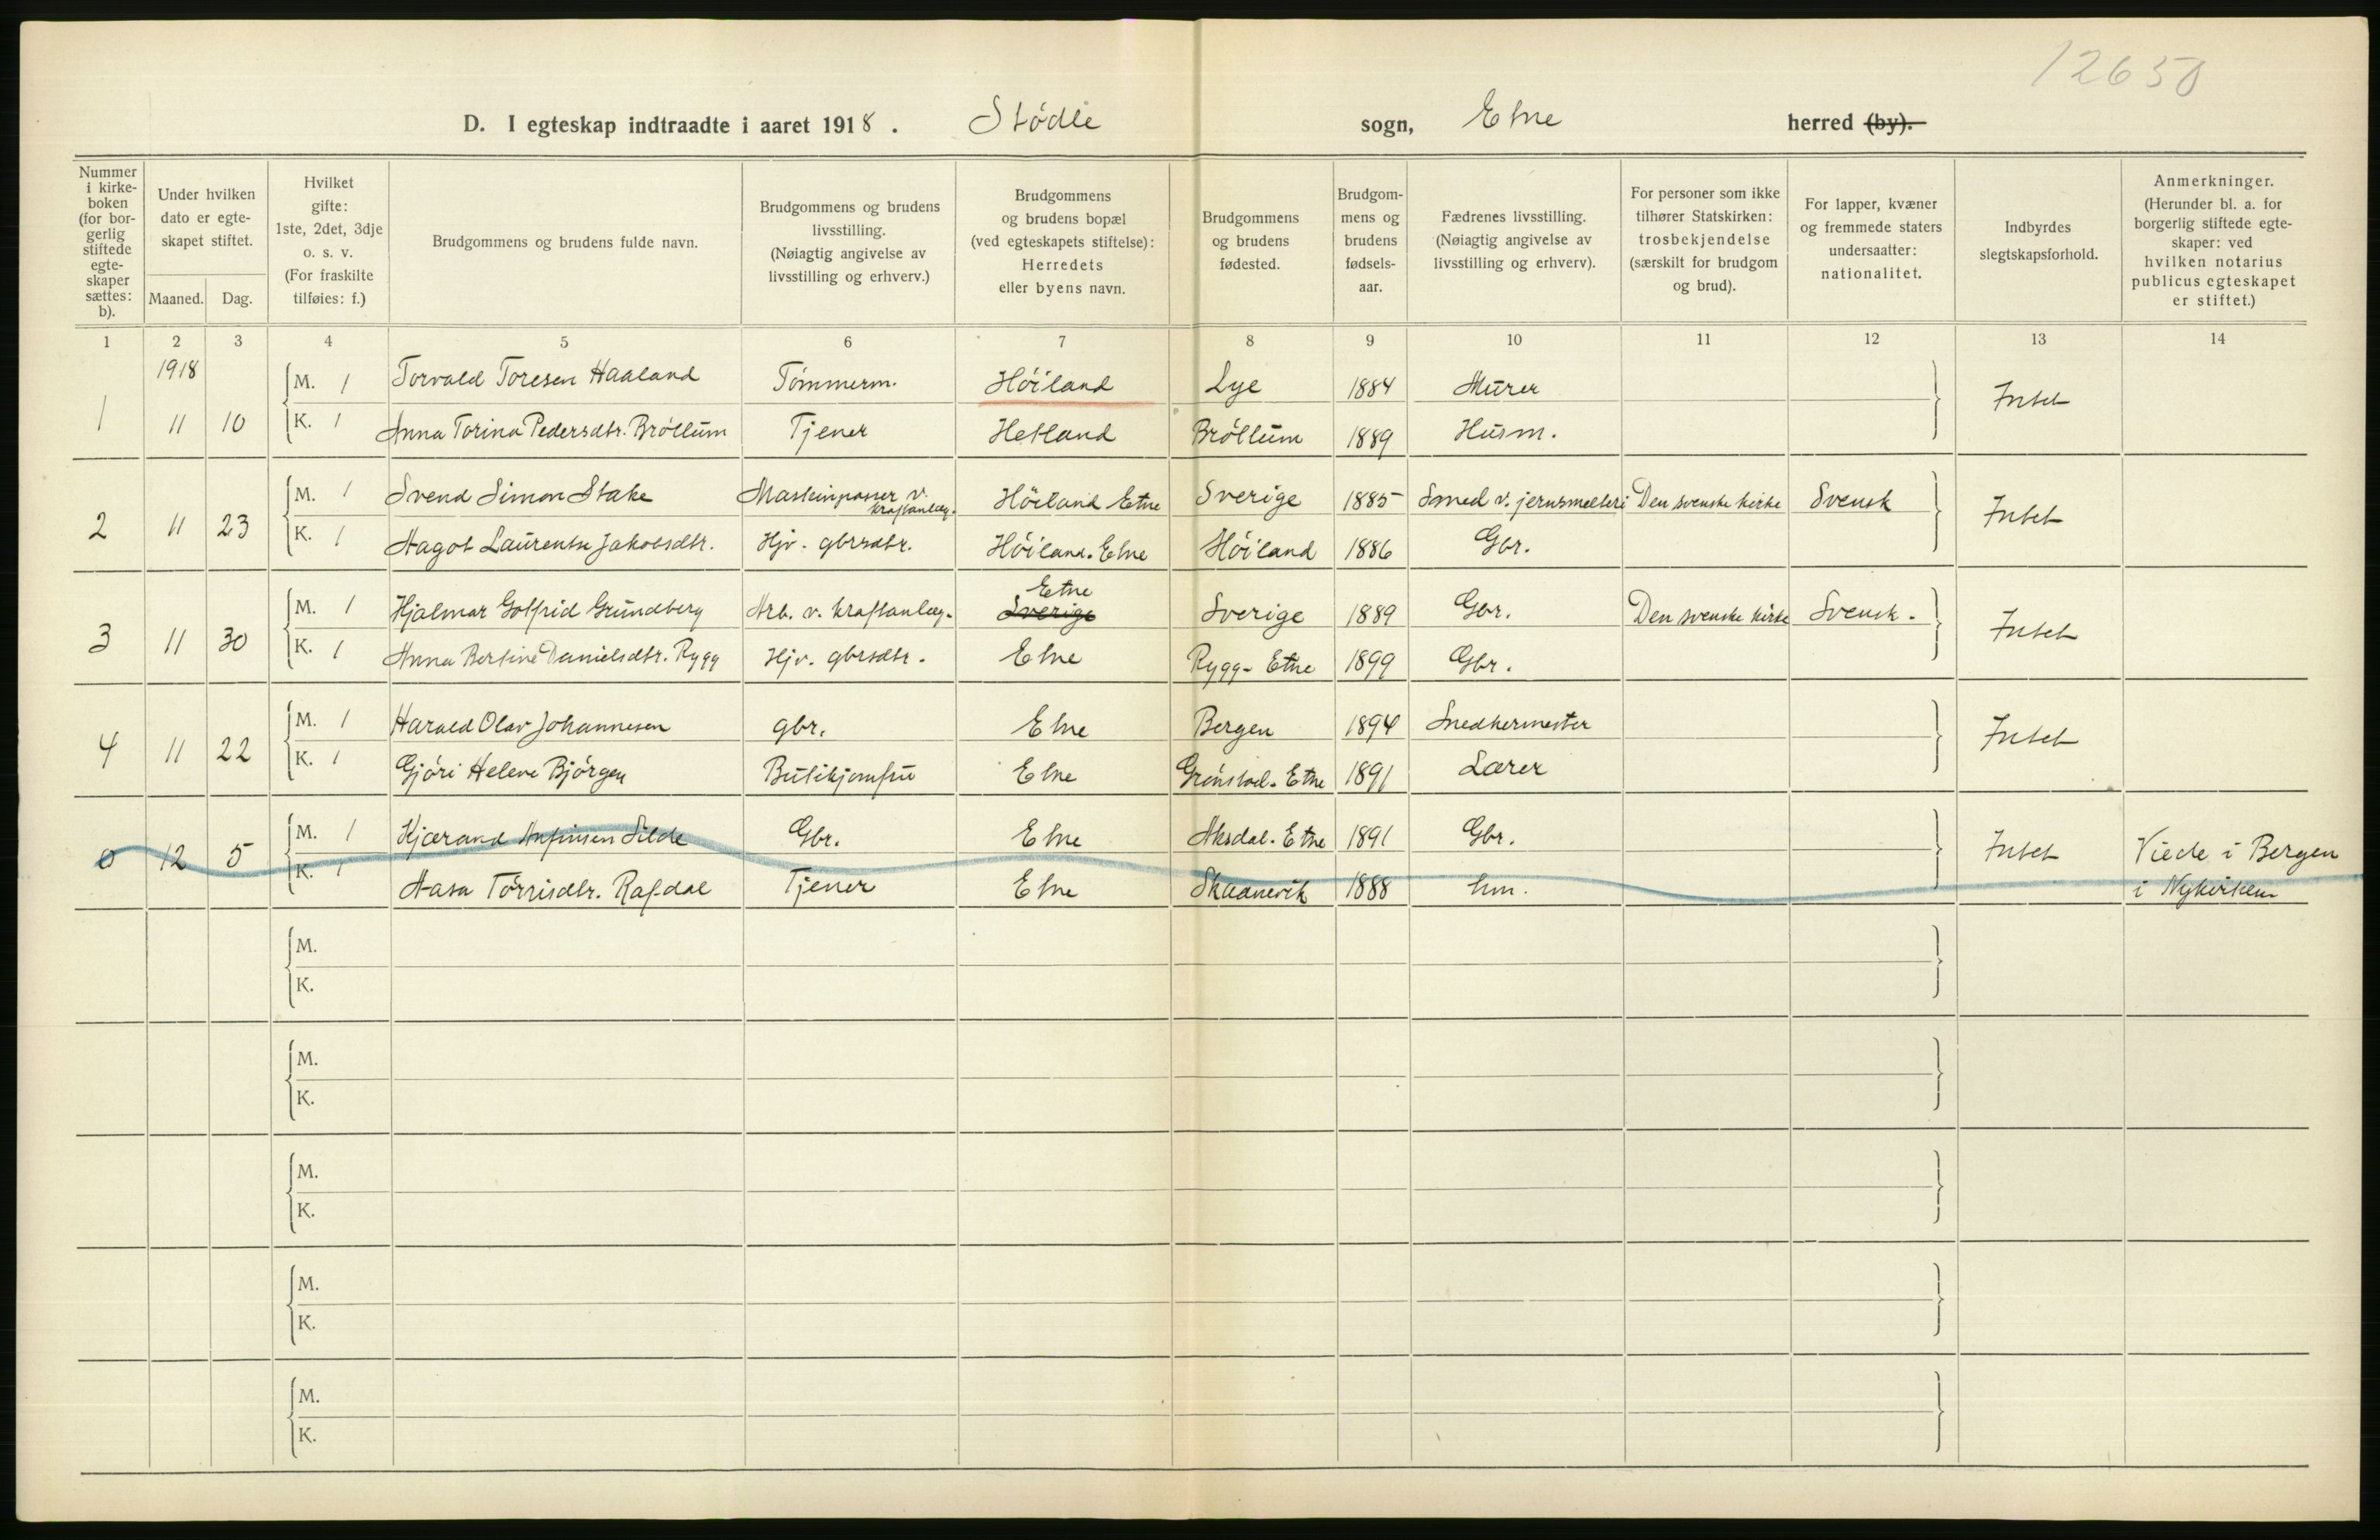 12650
D. I egteskap indtraadte i aaret 1918. Stødle sogn, Etne herred (by).
Nummer i kirke-boken (for bor-gerlig stiftede egte-skaper sættes: b).
Under hvilken dato er egte-skapet stiftet.
Maaned. Dag.
Hvilket gifte: 1ste, 2det, 3dje o. s. v. (For fraskilte tilføies: f.)
Brudgommens og brudens fulde navn.
Brudgommens og brudens livsstilling. (Nøiagtig angivelse av livsstilling og erhverv.)
Brudgommens og brudens bopæl (ved egteskapets stiftelse): Herredets eller byens navn.
Brudgommens og brudens fødested.
Brudgom-mens og brudens fødsels-aar.
Fædrenes livsstilling. (Nøiagtig angivelse av livsstilling og erhverv).
For personer som ikke tilhører Statskirken: trosbekjendelse (særskilt for brudgom og brud).
For lapper, kvæner og fremmede staters undersaatter: nationalitet.
Indbyrdes slegtskapsforhold.
Anmerkninger. (Herunder bl. a. for borgerlig stiftede egte-skaper: ved hvilken notarius publicus egteskapet er stiftet.)
1 2 3 4 5 6 7 8 9 10 11 12 13 14
1918
M. 1 Torvald Toresen Haaland Tømmerm. Høiland Lye 1884 Murer
1 11 10 Intet
K. 1 Anna Torina Pedersdtr. Brøllum Tjener Hetland Brøllum 1889 Husm.
M. 1 Svend Simon Stake Maskinpasser v. kraftanlæg. Höiland Etne Sverige 1885 Smed v. jernsmelteri Den svenske kirke Svensk
2 11 23 Intet
K. 1 Magot Laurentse Jakobsdtr. Hjv. gbrsdtr. Høiland. Etne Høiland 1886 Gbr.
Etne
M. 1 Hjalmar Gotfrid Grundberg Arb. v. kraftanlæg. Sverige Sverige 1889 Gbr. Den svenske kirke Svensk.
3 11 30 Intet
K. 1 Anna Bertine Danielsdtr. Rygg Hjv. gbrsdtr. Etne Rygg - Etne 1899 Gbr.
M. 1 Harald Olav Johannesen gbr. Etne Bergen 1894 Snedkermester
4 11 22 Intet
K. 1 Gjøri Helene Bjørgen Butikjomfru Etne Grønstad. Etne 1891 Lærer
M. 1 Kjærand Anfinsen Silde Gbr. Etne Aksdal. Etne 1891 Gbr.
0 12 5 Intet Viede i Bergen
K. 1 Aasa Tørrisdtr. Rafdal Tjener Etne Skaanevik 1888 hm. i Nykirken
M.
K.
M.
K.
M.
K.
M.
K.
M.
K.